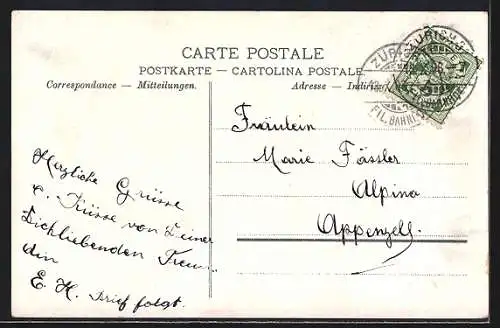 CARTE POSTALE
POSTKARTE - CARTOLINA POSTALE
Correspondance — Mitteilungen.
Adresse —
ZÜRICH
FIL. BAHNH
Fräulein
Marie Fässler
Alpina
Appenzell.
Herzliche Grüsse
u. Küsse von Deiner
Dichliebenden
E. H. Brief folgt.